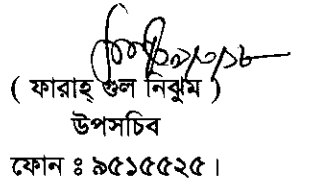 ( ফারাহ্ গুল নিঝুম )
উপসচিব
ফোন ঃ ৯৫১৫৫২৫।